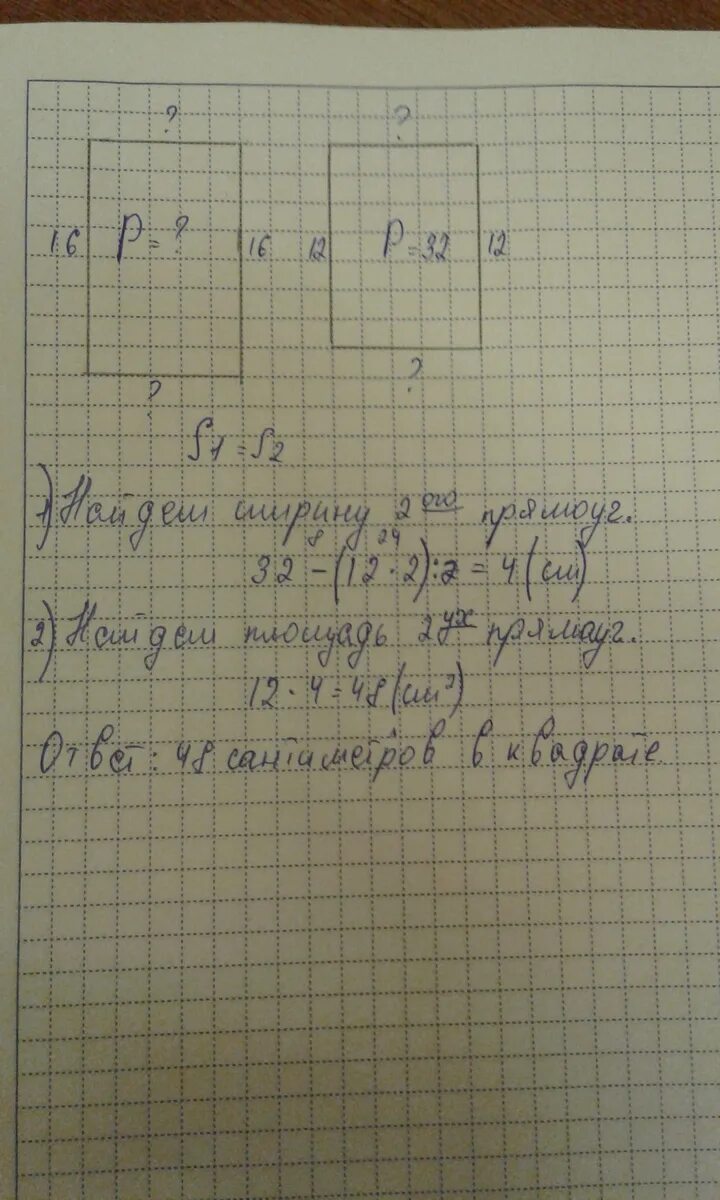 ? ?
16 P = ? 16 12 P = 32 12
? ?
S1 = S2
1) Найдем ширину 2ого прямоуг.
8 24
32 - (12 · 2) : 2 = 4 (см)
2) Найдем площадь 2ух прямоуг.
12 · 4 = 48 (см²)
Ответ: 48 сантиметров в квадрате